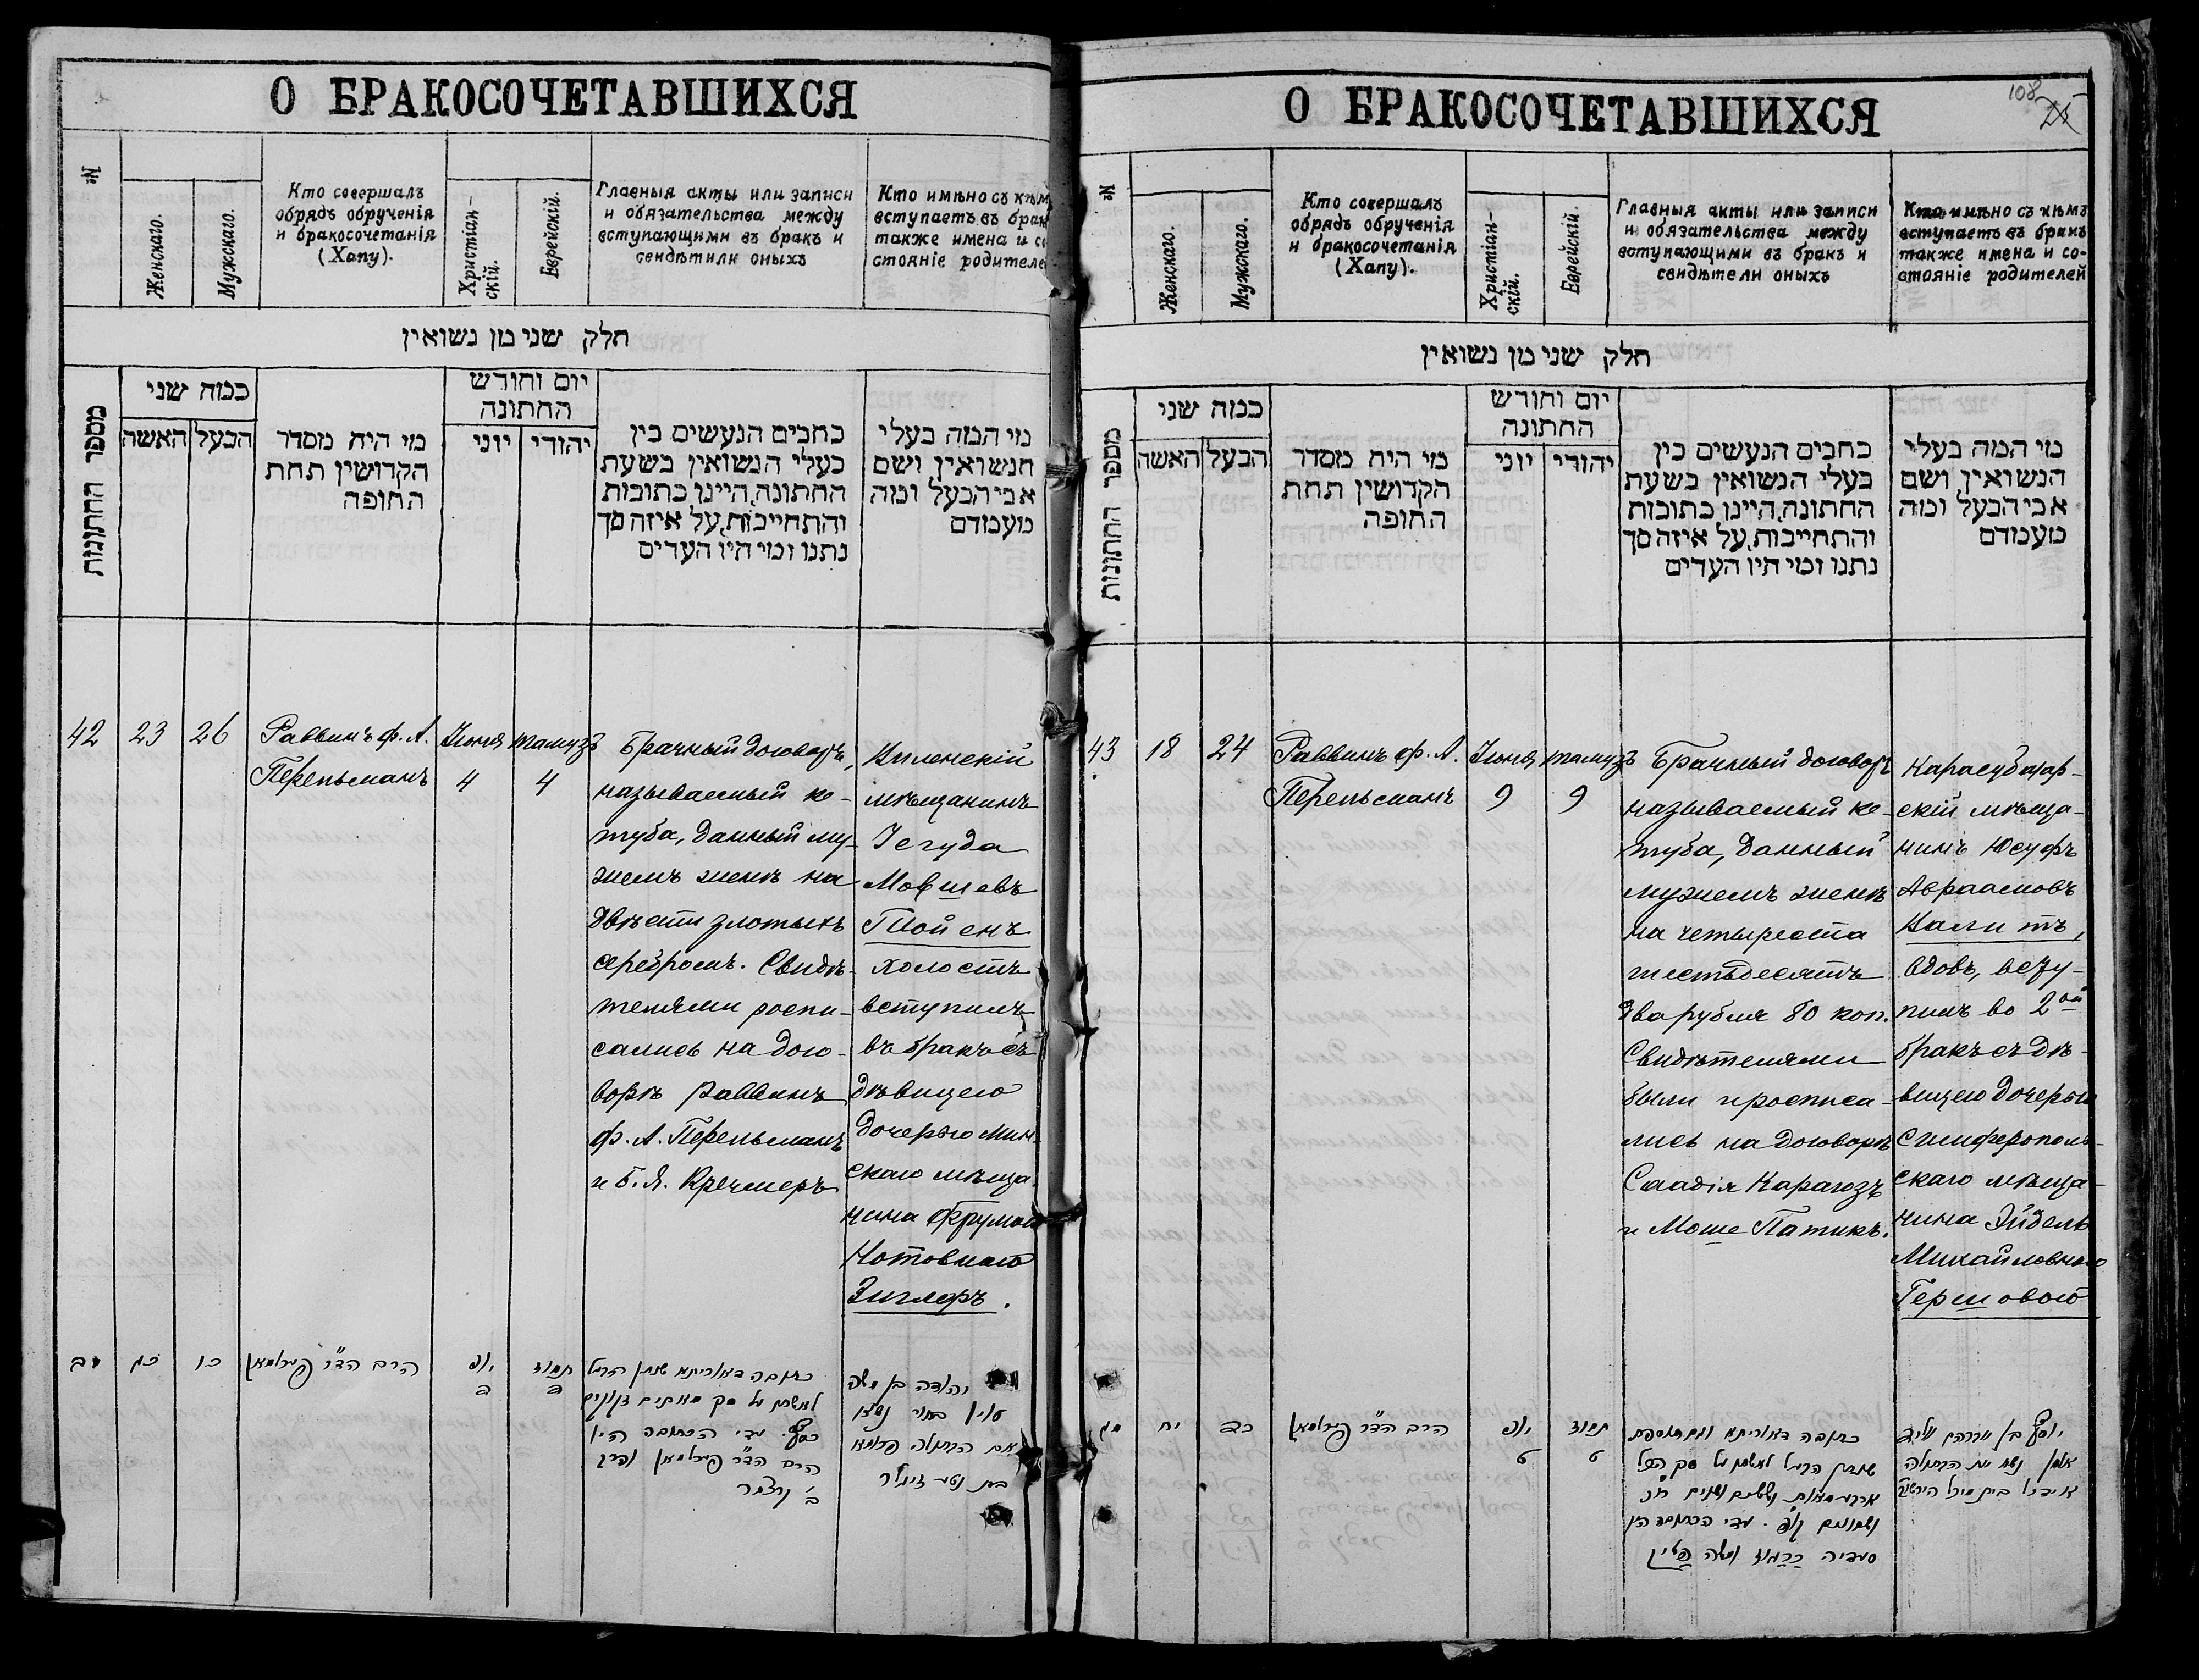 О БРАКОСОЧЕТАВШИХСЯ
№
Женскаго.
Мужскаго.
Кто совершалъ
обрядъ обрученія
и бракосочетанія
(Хапу).
Христіан-
скій.
Еврейскій.
Главныя акты или записи
и обязательства между
вступающими въ бракъ и
свидѣтили оныхъ
Кто имѣно съ кѣмъ
вступаетъ въ брак
также имена и со
стояніе родителе
חלק שני מן נשואין
מספר החתונות
כמה שני
האשה
הבעל
מי היה מסדר
הקדושין תחת
החופה
יום וחודש
החתונה
יוני
יהודי
כתבים הנעשים בין
בעלי הנשואין בשעת
החתונה, היינו כתובות
והתחייבות, על איזה סך
נתנו ומי היו העדים
מי המה בעלי
הנשואין ושם
אבי הבעל ומה
מעמדם
42
23
26
Раввинъ ф. А.
Перельманъ
Іюня
4
тамузъ
4
Брачный договоръ,
называемый ке-
туба, данный му-
жемъ женѣ на
двѣсти злотыхъ
серебромъ. Свидѣ-
телями роспи-
сались на дого-
ворѣ раввинъ
ф. А. Перельманъ
и Б. Я. Кречмеръ
Виленскій
мѣщанинъ
Іегуда
Мовшевъ
Гпойенъ
холостъ
вступилъ
въ бракъ съ
дѣвицею
дочерью Мин-
скаго мѣща-
нина Фрумою
Нотовною
Зиглеръ.
מב
כג
כו
הרב הד״ר פערלמאן
יוני
ד
תמוז
ד
כתובה דאוריתא שנתן הבעל
לאשתו על סך מאתים זקוקים
כסף. עדי הכתובה היו
הרב הד״ר פערלמאן
ב׳ קרצמר
יהודה בן משה
בחור נשא
את הבתולה פרומא
בת נטע זיגלר
О БРАКОСОЧЕТАВШИХСЯ
108
№
Женскаго.
Мужскаго.
Кто совершалъ
обрядъ обрученія
и бракосочетанія
(Хапу).
Христіан-
скій.
Еврейскій.
Главныя акты или записи
и обязательства между
вступающими въ бракъ и
свидѣтели оныхъ
Кто имѣно съ кѣмъ
вступаетъ въ бракъ
также имена и со-
стояніе родителей
חלק שני מן נשואין
מספר החתונות
כמה שני
האשה
הבעל
מי היה מסדר
הקדושין תחת
החופה
יום וחודש
החתונה
יוני
יהודי
כתבים הנעשים בין
בעלי הנשואין בשעת
החתונה, היינו כתובות
והתחייבות, על איזה סך
נתנו ומי היו העדים
מי המה בעלי
הנשואין ושם
אבי הבעל ומה
מעמדם
43
18
24
Раввинъ ф. А.
Перельманъ
Іюня
9
тамузъ
9
Брачный договоръ
называемый ке-
туба, данный
мужемъ женѣ
на четыреста
шестьдесятъ
два рубля 80 коп.
Свидѣтелями
были и росписа-
лись на договорѣ
Саадія Карагозъ
и Моше Патикъ.
Карасубазар-
скій мѣща-
нинъ Юсуфъ
Авраамовъ
Валитъ,
вдовъ, всту-
пилъ во 2ой
бракъ съ дѣ-
вицею дочерью
Симферополь-
скаго мѣща-
нина Эйдель
Михайловною
Гершовою
מג
יח
כד
הרב הד״ר פערלמאן
יוני
ט
תמוז
ט
כתובה דאוריתא ותוספת
שנתן הבעל לאשתו על סך הכל
ארבע מאות וששים ושנים רו׳כ
ושמונים קופ׳. עדי הכתובה היו
סעדיה כרגוז ומשה פטיק
יוסף בן אברהם
אלמן נשא את הבתולה
איידיל בית מיכל